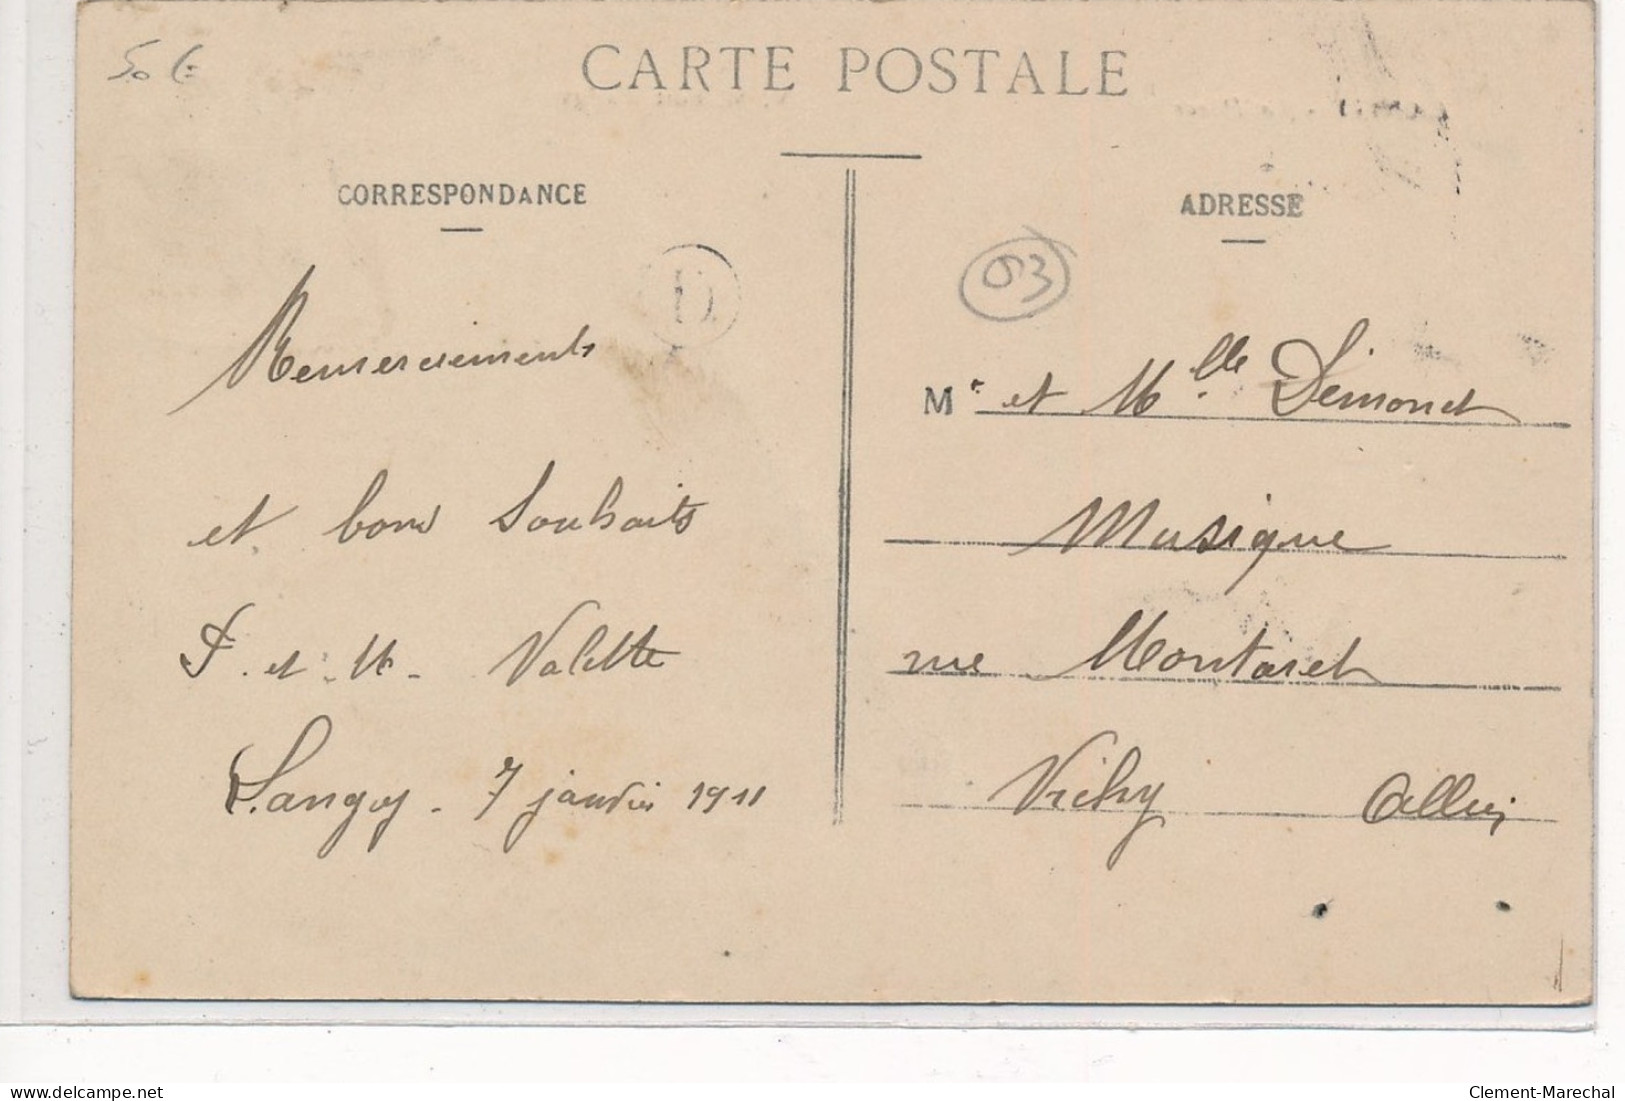 50 €
CARTE POSTALE
CORRESPONDANCE
Remerciements
et bons Souhaits
F. et M. Valette
Sangoy. 7 janvier 1911
D
ADRESSE
03
Mr et Mlle Simonet
Musique
rue Montaret
Vichy Allier
delcampe.net
Clement-Marechal